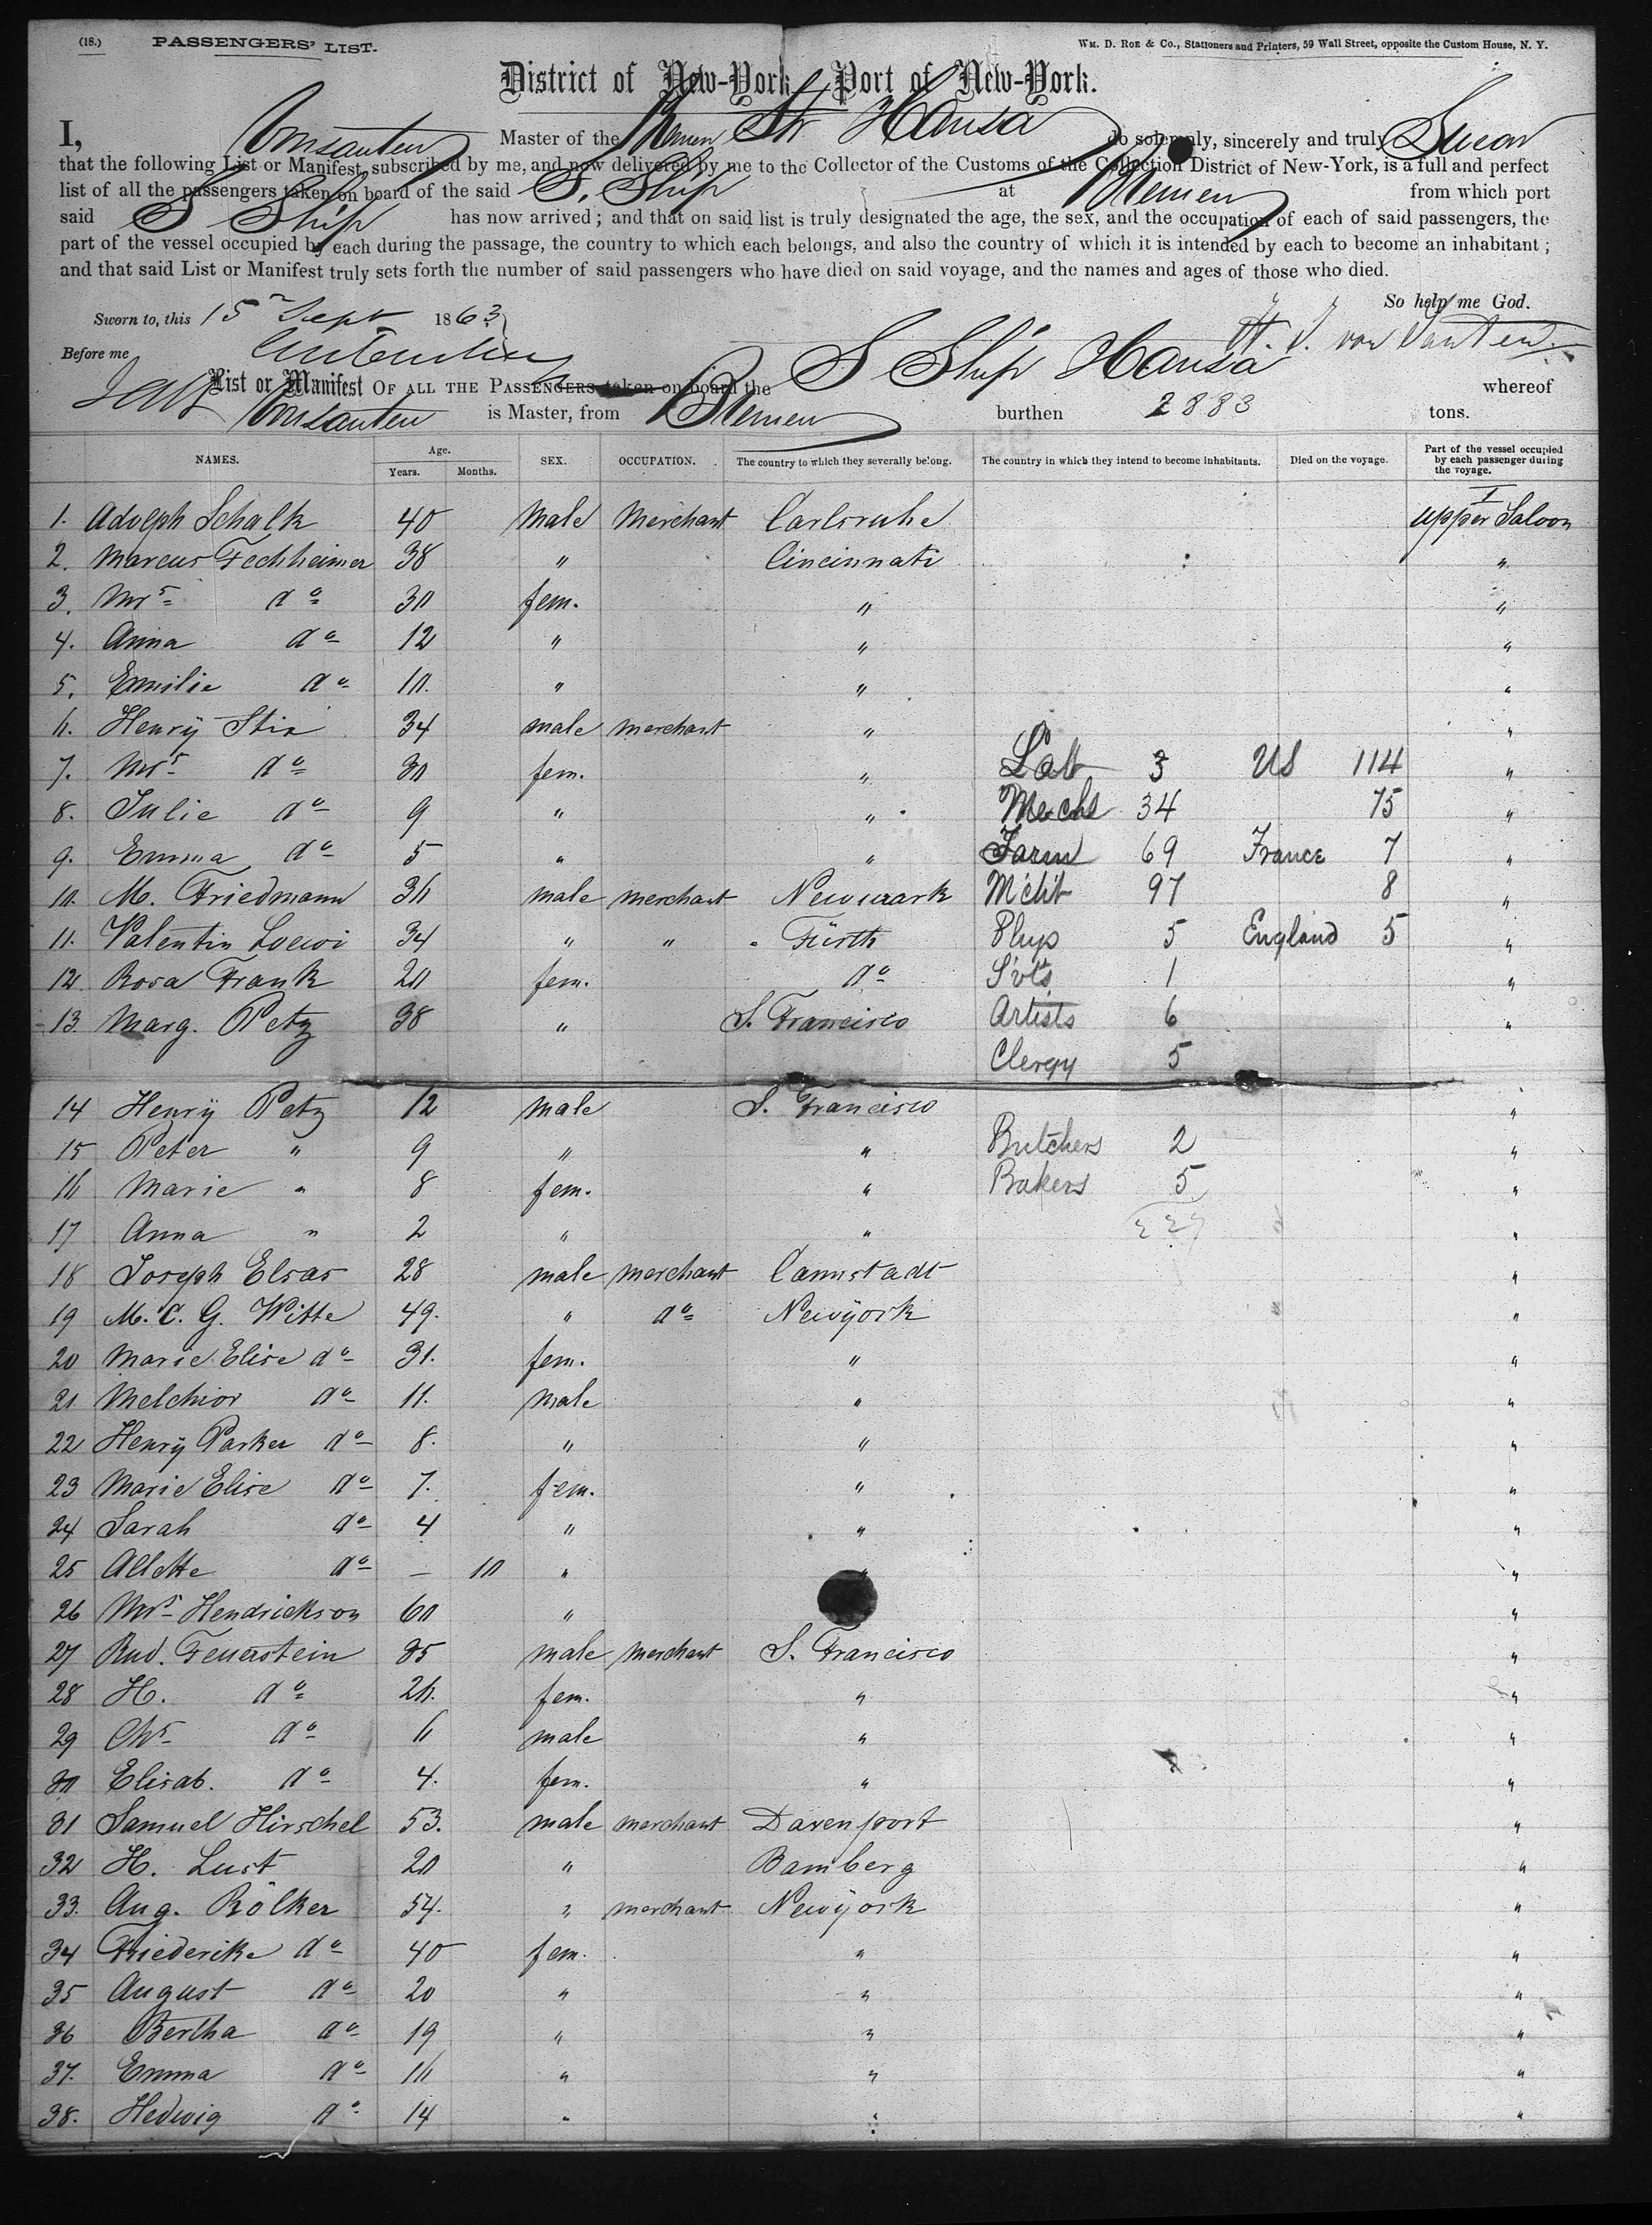 (18.) PASSENGERS' LIST. WM. D. ROE & Co., Stationers and Printers, 59 Wall Street, opposite the Custom House, N. Y.
District of New-York, Port of New-York.
I, von Santen Master of the Bremen Str Hansa do solemnly, sincerely and truly Swear
that the following List or Manifest, subscribed by me, and now delivered by me to the Collector of the Customs of the Collection District of New-York, is a full and perfect
list of all the passengers taken on board of the said S. Ship at Bremen from which port
said S Ship has now arrived; and that on said list is truly designated the age, the sex, and the occupation of each of said passengers, the
part of the vessel occupied by each during the passage, the country to which each belongs, and also the country of which it is intended by each to become an inhabitant;
and that said List or Manifest truly sets forth the number of said passengers who have died on said voyage, and the names and ages of those who died.
So help me God.
Sworn to, this 15 Sept 1863
H. J. von Santen.
Before me
List or Manifest OF ALL THE PASSENGERS taken on board the S Ship Hansa whereof
von Santen is Master, from Bremen burthen 2883 tons.
NAMES. Age. Years. Months. SEX. OCCUPATION. The country to which they severally belong. The country in which they intend to become inhabitants. Died on the voyage. Part of the vessel occupied by each passenger during the voyage.
1. Adolph Schalk 40 Male Merchant Carlsruhe I upper Saloon
2. Marcus Fechheimer 38 " Cincinnati "
3. Mrs do 30 fem. " "
4. Anna do 12 " " "
5. Emilie do 10. " " "
6. Henry Stix 34 male merchant " "
7. Mrs do 30 fem. " Lab 3 US 114 "
8. Julie do 9 " " Mechs 34 75 "
9. Emma do 5 " " Farm 69 France 7 "
10. M. Friedmann 36 male merchant Newwark Mcht 97 8 "
11. Valentin Loewi 34 " " Fürth Phys 5 England 5 "
12. Rosa Frank 20 fem. do Svts 1 "
13. Marg. Petz 38 " S. Francisco Artists 6 "
Clergy 5
14 Henry Petz 12 male S. Francisco "
15 Peter " 9 " " Butchers 2 "
16 Marie " 8 fem. " Bakers 5 "
17 Anna " 2 " " "
18 Joseph Elsas 28 male merchant Cannstadt "
19 M. C. G. Witte 49. " do Newyork "
20 Marie Elise do 31. fem. " "
21 Melchior do 11. Male " "
22 Henry Parker do 8. " " "
23 Marie Elise do 7. fem. " "
24 Sarah do 4 " " "
25 Allette do — 10 " "
26 Mrs Hendrickson 60 " "
27 Rud. Feuerstein 35 male merchant S. Francisco "
28 H. do 26. fem. " "
29 Chs do 6 male " "
30 Elisab. do 4. fem. " "
31 Samuel Hirschel 53. male merchant Davenport "
32 H. Lust 20 " Bamberg "
33. Aug. Rölker 54. " merchant Newyork "
34 Friederike do 40 fem. " "
35 August do 20 " " "
36 Bertha do 19 " " "
37. Emma do 16 " " "
38. Hedwig do 14 " " "